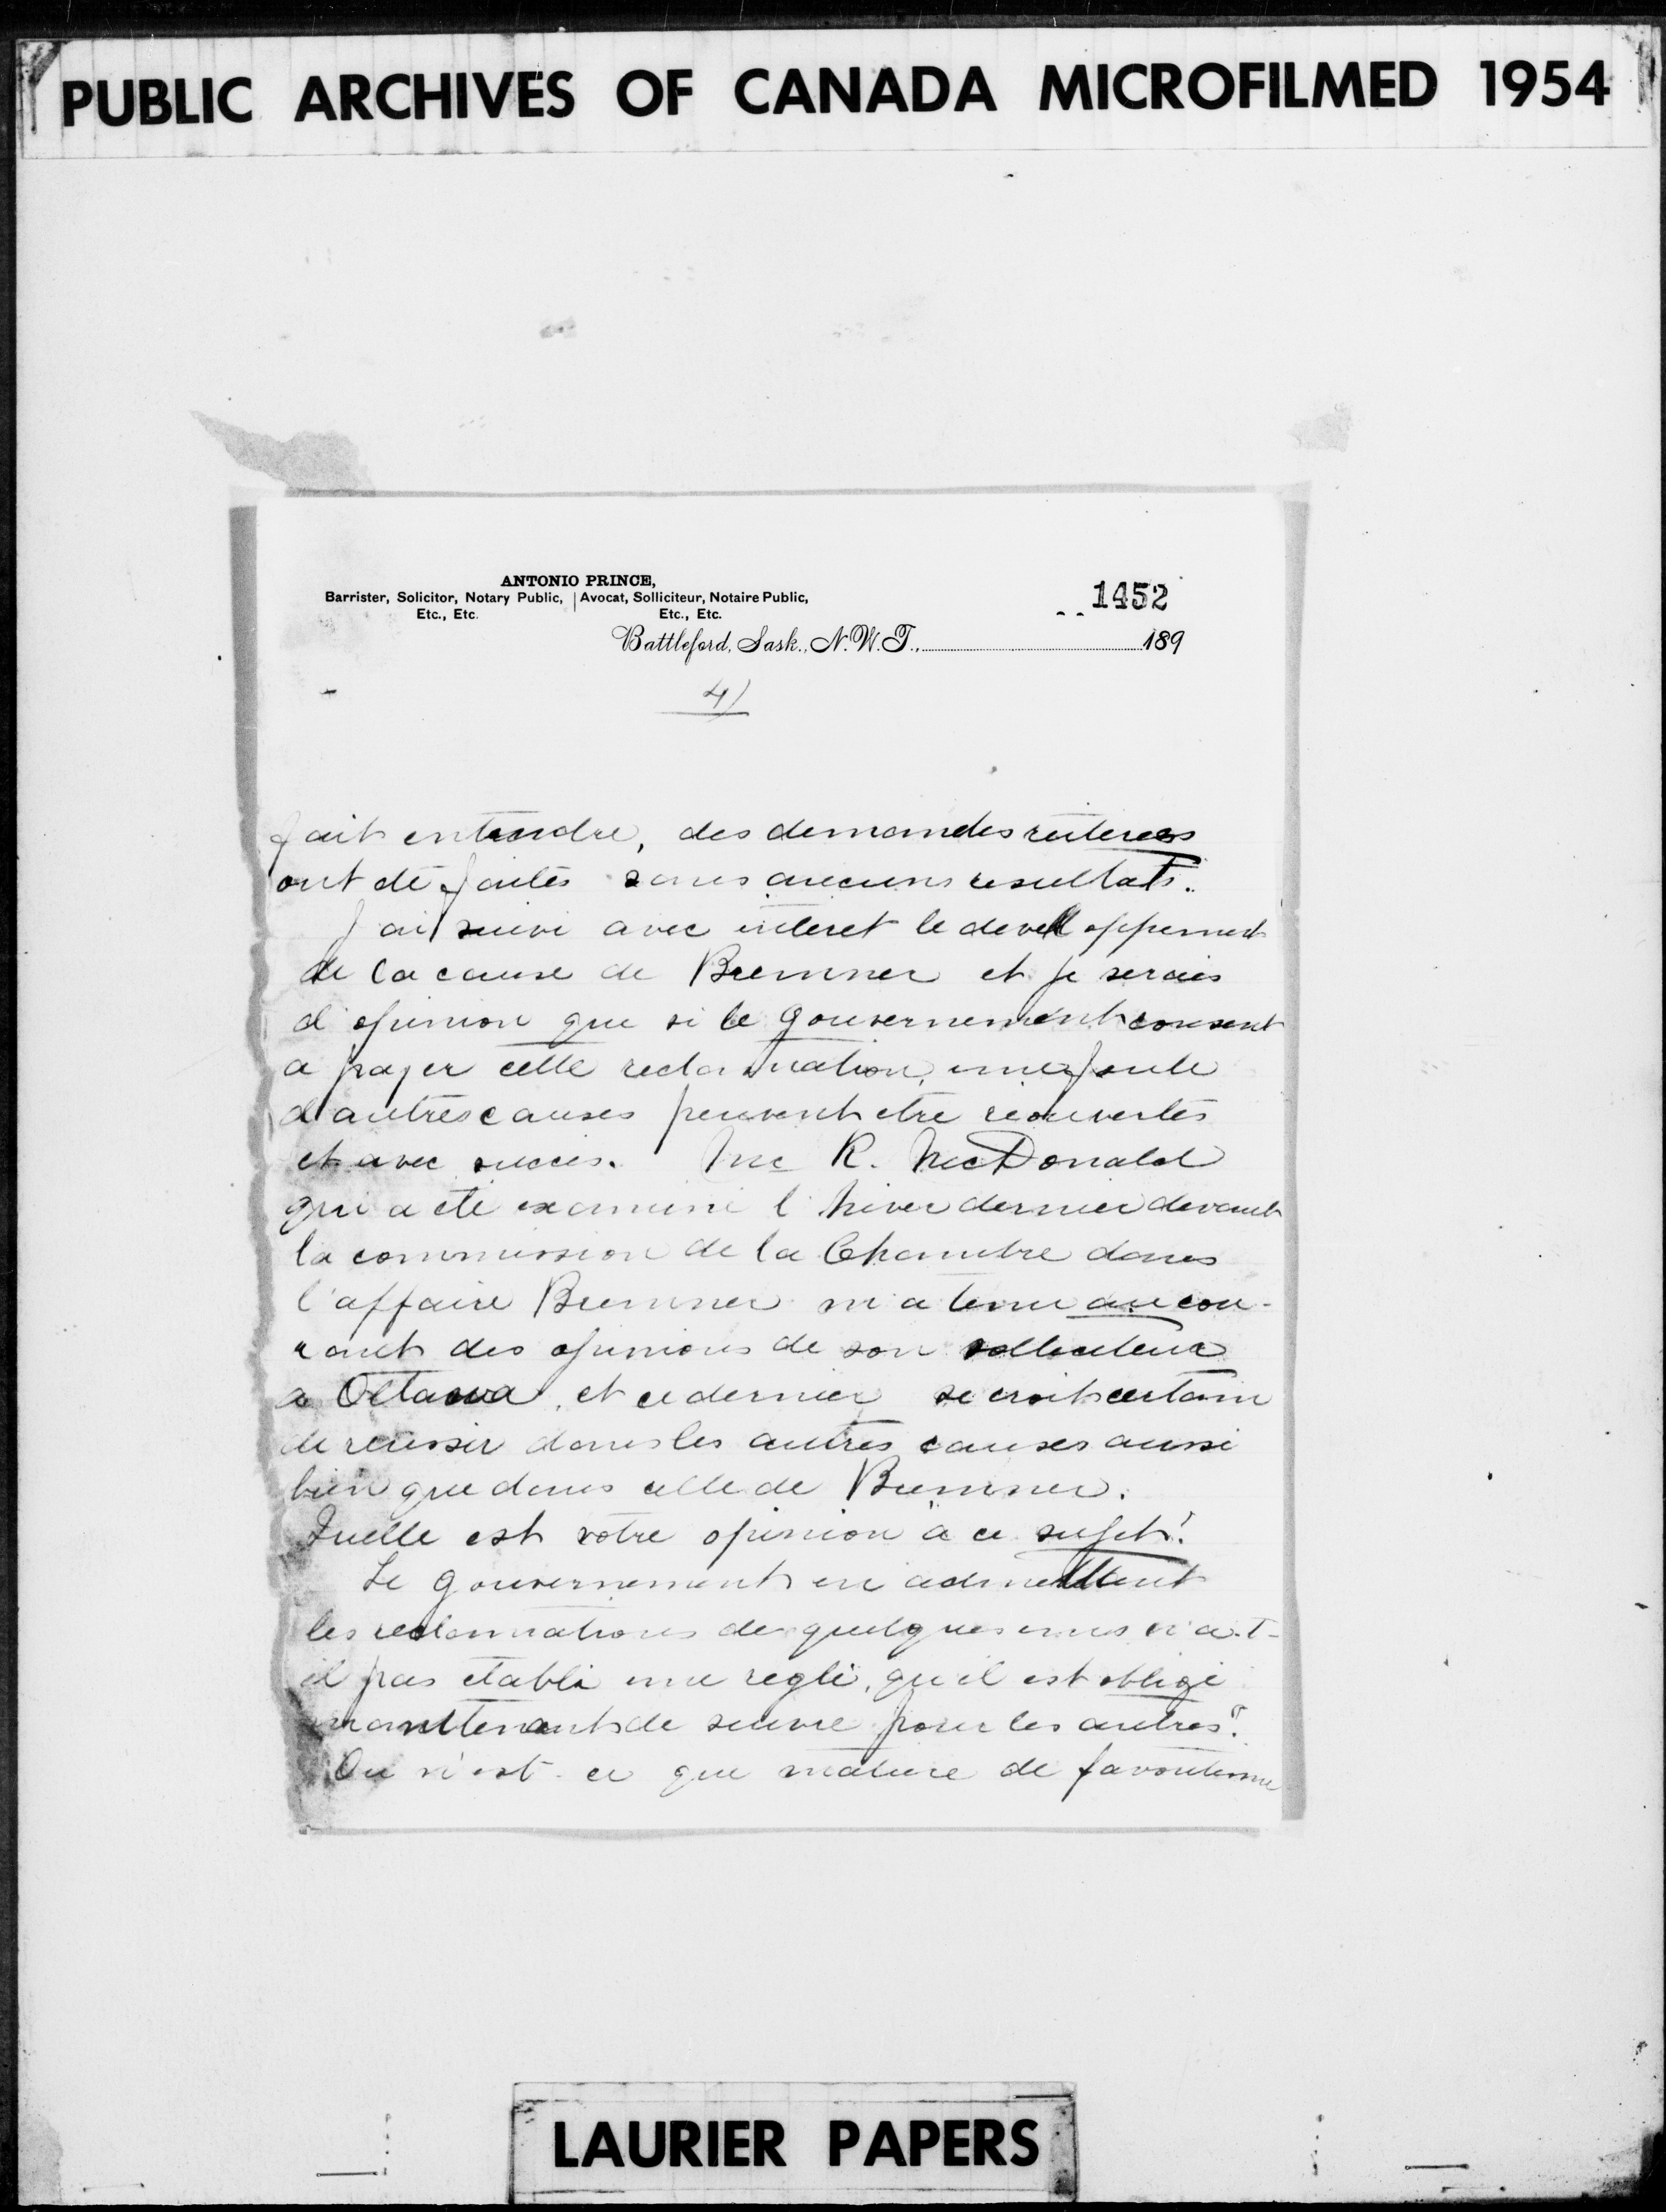 PUBLIC ARCHIVES OF CANADA MICROFILMED 1954
ANTONIO PRINCE,
Barrister, Solicitor, Notary Public, | Avocat, Solliciteur, Notaire Public,
Etc., Etc. Etc., Etc.
1452
Battleford, Sask., N.W.T., 189
4)
fait entendre, des demandes reiterees
ont été faites sans aucuns resultats.
J'ai suivi avec interet le developpement
de la cause de Bremner et je serais
d'opinion que si le gouvernement consent
a payer cette reclamation, une foule
d'autres causes peuvent etre reouvertes
et avec succès. Mr R. McDonald
qui a été examiné l'hiver dernier devant
la commission de la Chambre dans
l'affaire Bremner m'a tenu au cou-
rant des opinions de son solliciteur
a Ottawa, et ce dernier se croit certain
de reussir dans les autres causes aussi
bien que dans celle de Bremner.
Quelle est votre opinion à ce sujet?
Le gouvernement en admettant
les reclamations de quelques unes n'a-t-
il pas établi une regle, qu'il est obligé
maintenant de suivre pour les autres?
Ou n'est-ce que matiere de favoritisme
LAURIER PAPERS